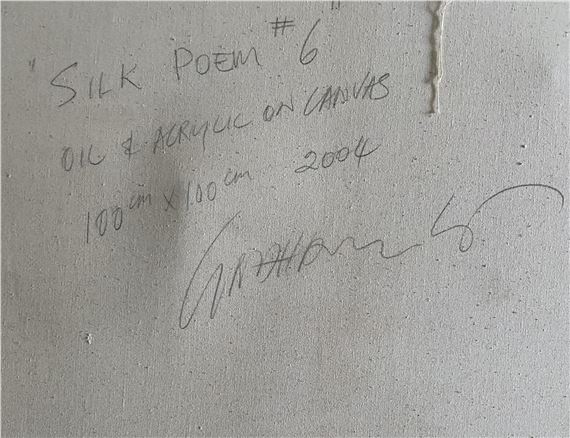 "SILK POEM #6"
OIL & ACRYLIC ON CANVAS
100cm x 100cm 2004